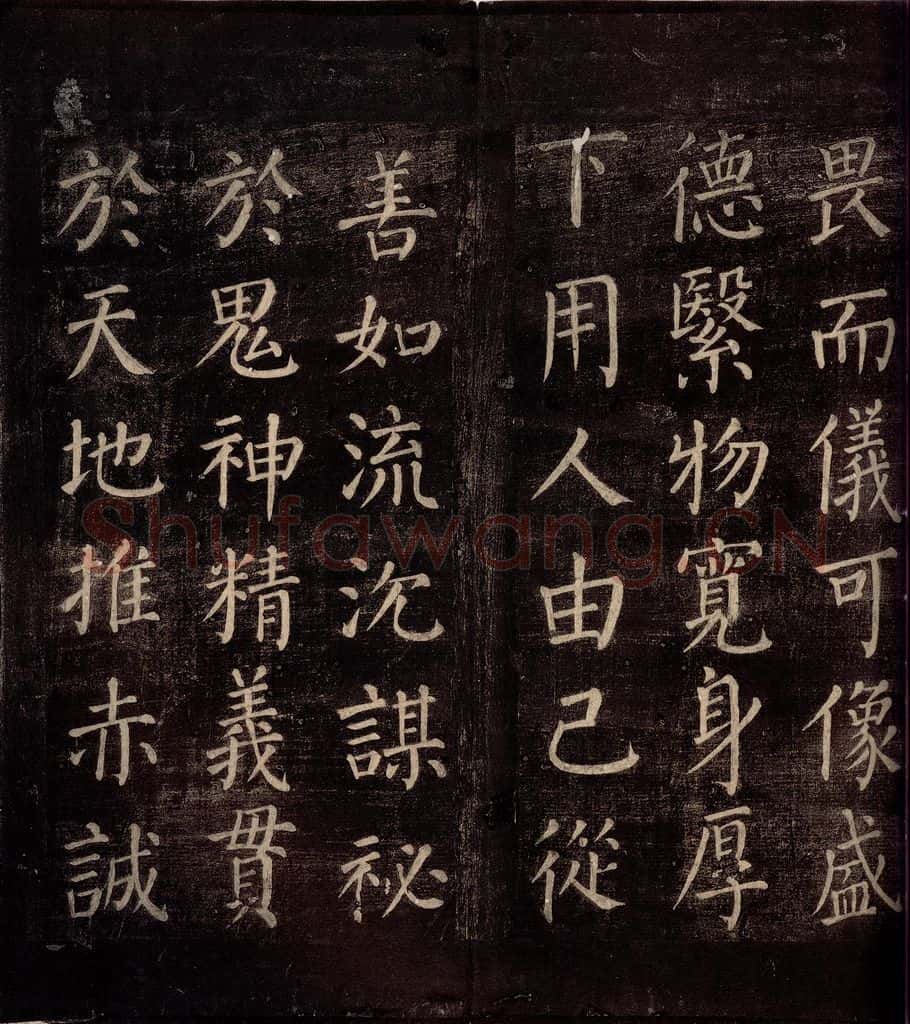 畏而儀可像盛
德緊物寬身厚
下用人由己從
善如流沈謀祕
於鬼神精義貫
於天地推赤誠
Shufawang.CN